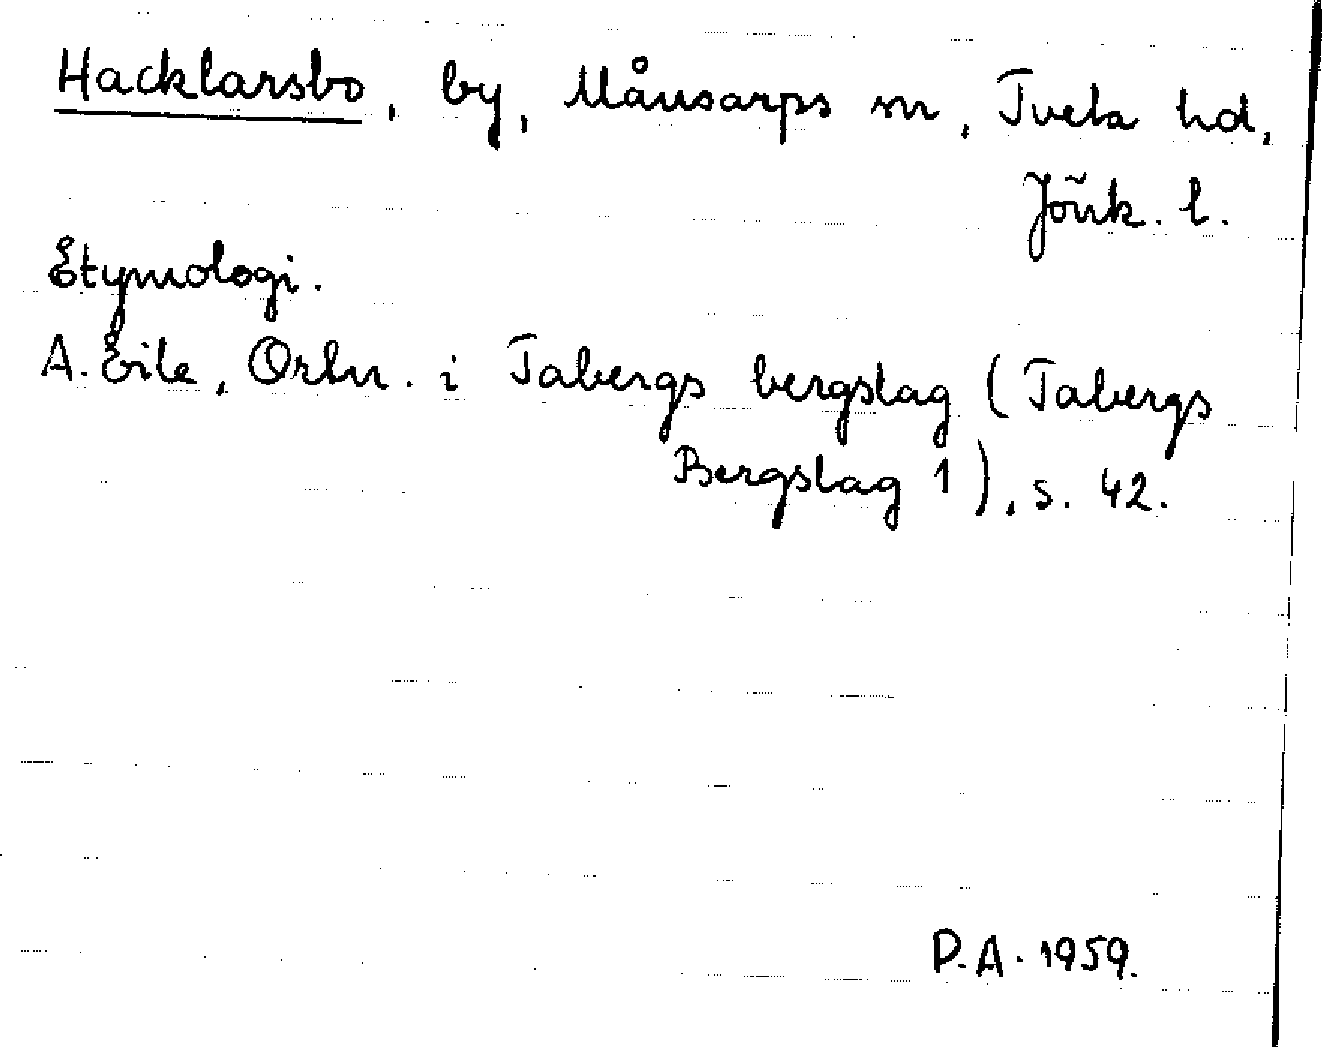 Hacklarsbo, by, Månsarps sn, Tveta hd,
Jönk. l.
Etymologi.
A. Eile, Ortn. i Tabergs bergslag (Tabergs
Bergslag 1), s. 42.
P.A. 1959.